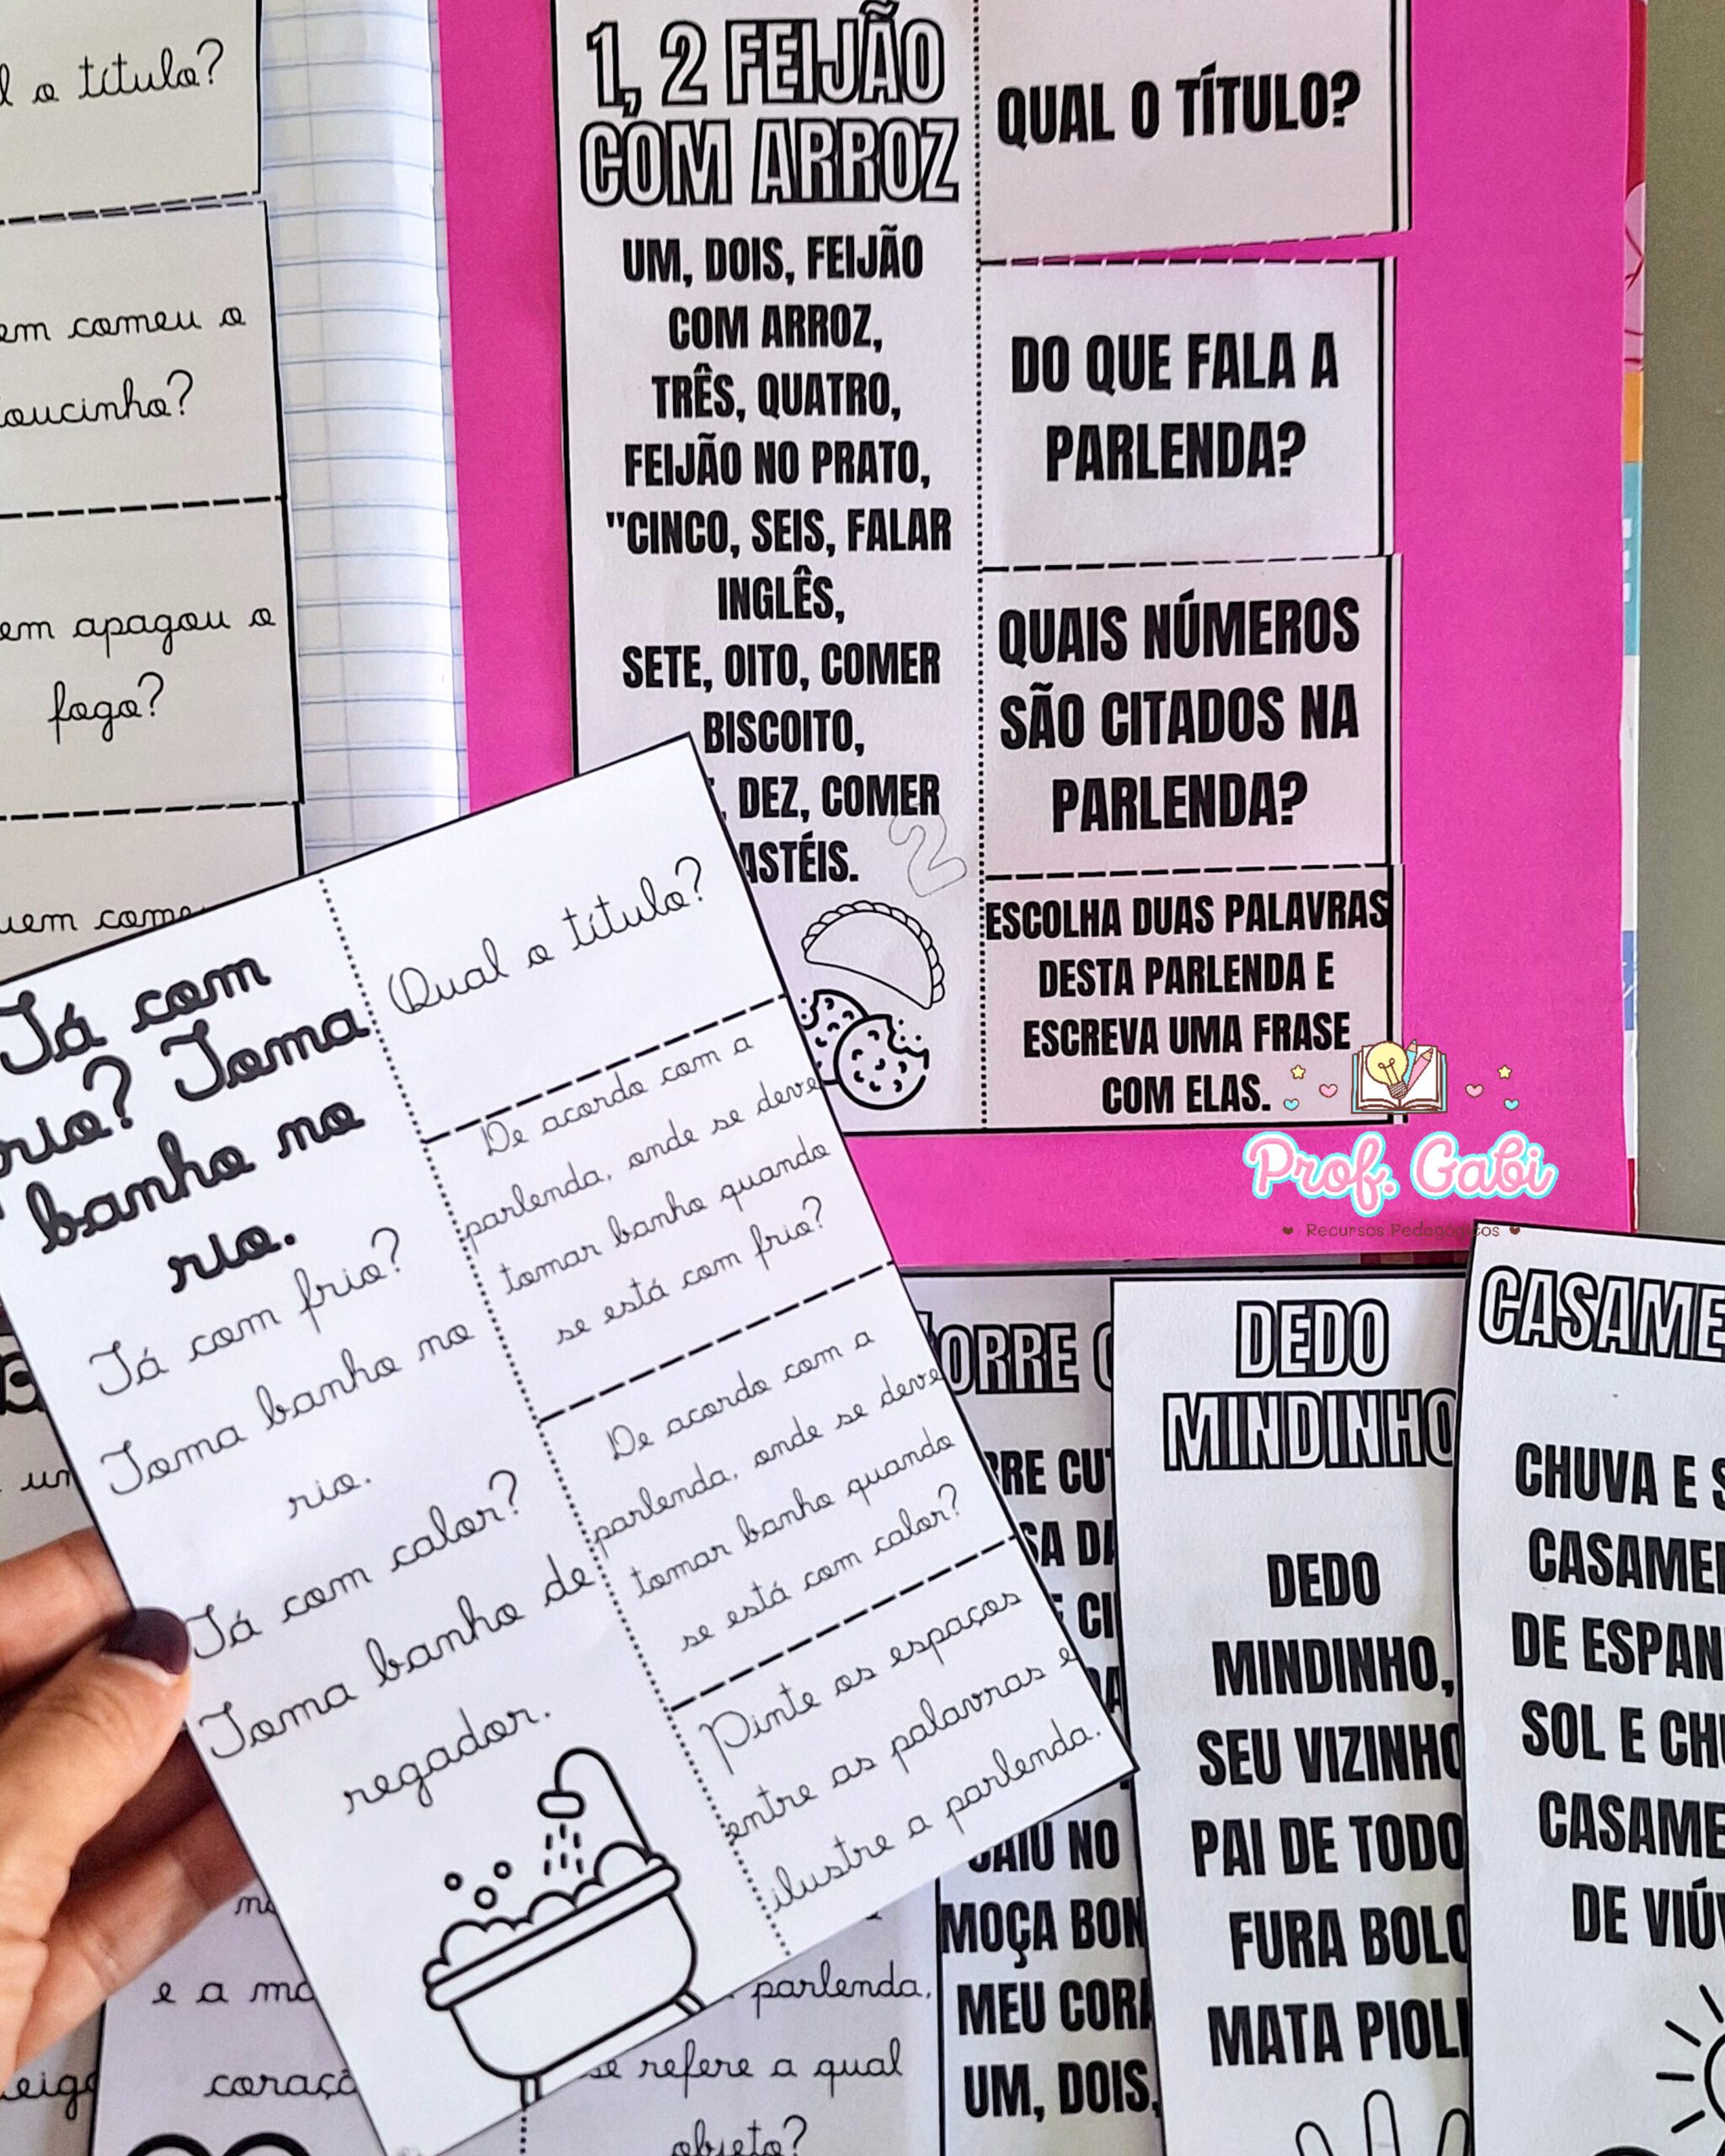 o título?
comeu o
apagou o
fogo?
1, 2 FEIJÃO
COM ARROZ
UM, DOIS, FEIJÃO
COM ARROZ,
TRÊS, QUATRO,
FEIJÃO NO PRATO,
"CINCO, SEIS, FALAR
INGLÊS,
SETE, OITO, COMER
BISCOITO,
DEZ, COMER
2
QUAL O TÍTULO?
DO QUE FALA A
PARLENDA?
QUAIS NÚMEROS
SÃO CITADOS NA
PARLENDA?
ESCOLHA DUAS PALAVRAS
DESTA PARLENDA E
ESCREVA UMA FRASE
COM ELAS.
Prof. Gabi
Recursos Pedagógicos
Tá com
frio? Toma
banho no
rio.
Tá com frio?
Toma banho no
rio.
Tá com calor?
Toma banho de
regador.
Qual o título?
De acordo com a
parlenda, onde se deve
tomar banho quando
se está com frio?
De acordo com a
parlenda, onde se deve
tomar banho quando
se está com calor?
Pinte os espaços
entre as palavras e
ilustre a parlenda.
e a
parlenda,
se refere a qual
objeto?
CAIU NO
MOÇA
MEU
UM, DOIS,
DEDO
MINDINHO
DEDO
MINDINHO,
SEU VIZINHO
PAI DE TODO
FURA
MATA
CHUVA E
DE
SOL E
DE